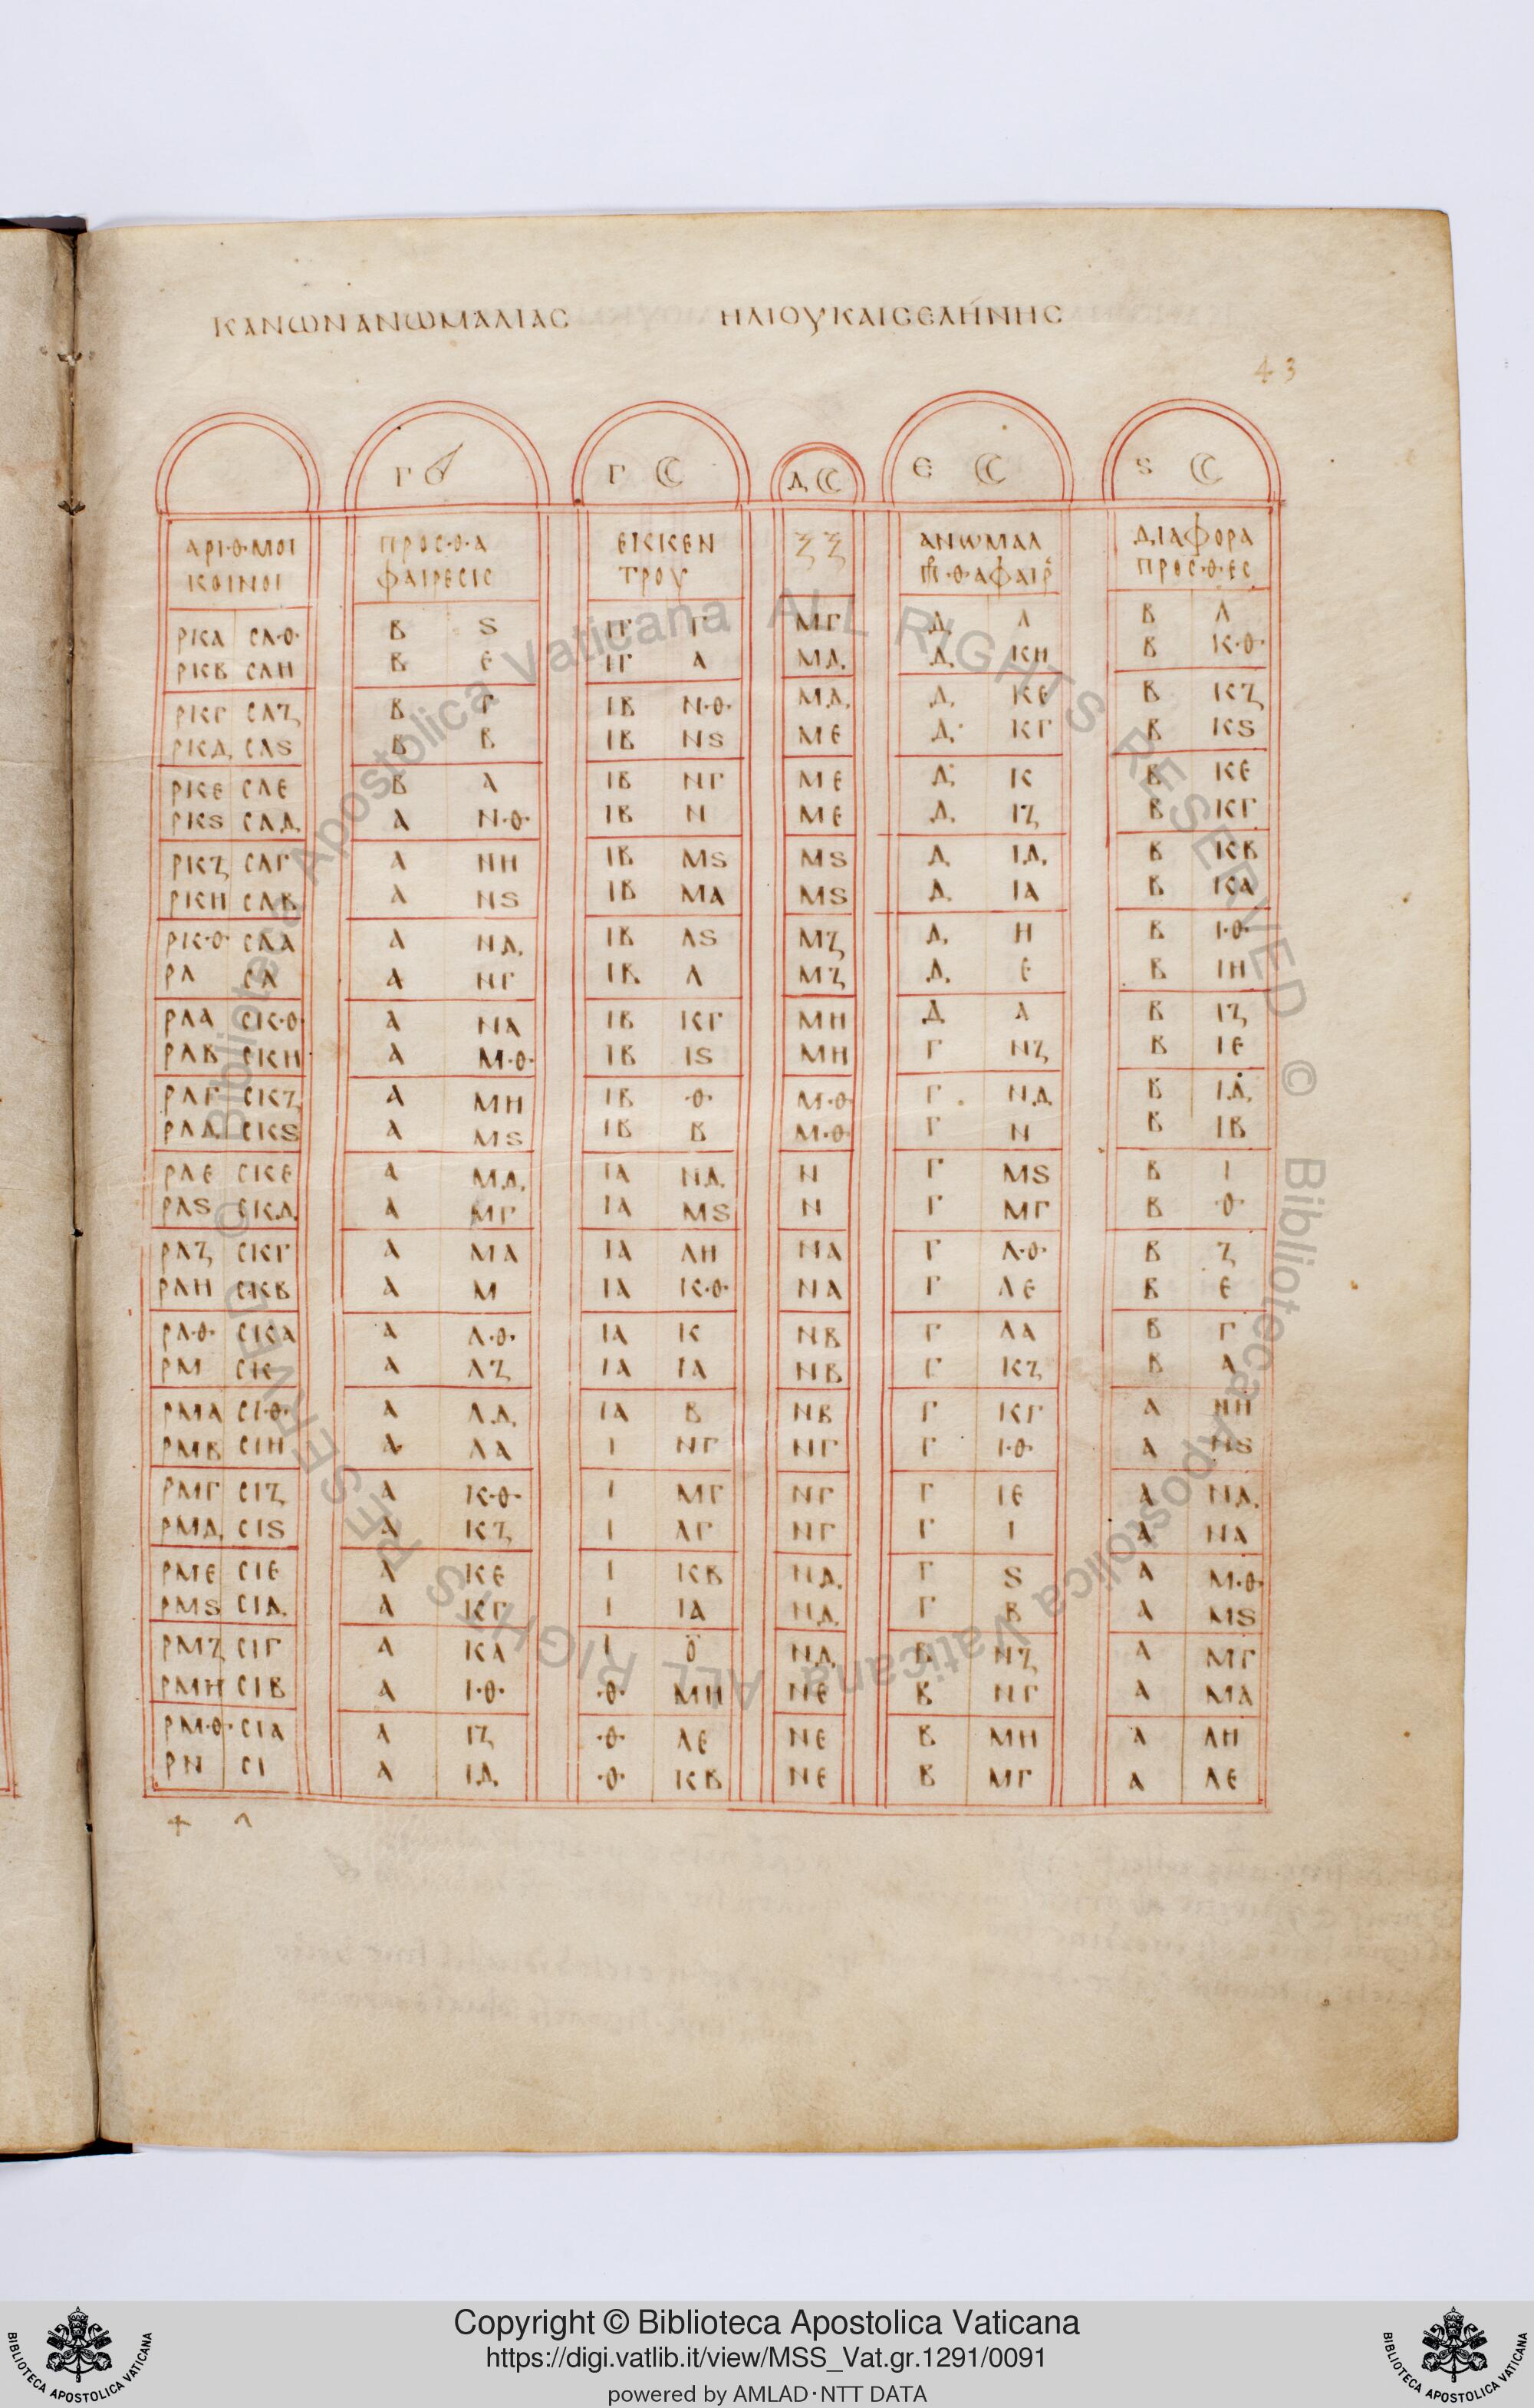 ΚΑΝΩΝΑΝΩΜΑΛΙΑC ΗΛΙΟΥΚΑΙCΕΛΗΝΗC
43
Γ Γ Δ Ε Ϛ
ΑΡΙ·Θ·ΜΟΙ ΠΡΟC·Θ·Α ΕΚΚΕΝ ΞΞ ΑΝΩΜΑΛ ΔΙΑΦΟΡΑ
ΚΟΙΝΟΙ ΦΑΙΡΕCΙC ΤΡΟΥ ·Θ·ΑΦΑΙΡ ΠΡΟC·Θ·ΕC
ΡΚΑ CΛ·Θ· Β Ϛ ΙΓ Γ ΜΓ Δ Λ Β Λ
ΡΚΒ CΛΗ Β Ε ΙΓ Α ΜΔ Δ ΚΗ Β Κ·Θ·
ΡΚΓ CΛΖ Β Γ ΙΒ Ν·Θ· ΜΔ Δ ΚΕ Β ΚΖ
ΡΚΔ CΛϚ Β Β ΙΒ ΝϚ ΜΕ Δ ΚΓ Β ΚϚ
ΡΚΕ CΛΕ Β Α ΙΒ ΝΓ ΜΕ Δ Κ Β ΚΕ
ΡΚϚ CΛΔ Α Ν·Θ· ΙΒ Ν ΜΕ Δ ΙΖ Β ΚΓ
ΡΚΖ CΛΓ Α ΝΗ ΙΒ ΜϚ ΜϚ Δ ΙΔ Β ΚΒ
ΡΚΗ CΛΒ Α ΝϚ ΙΒ ΜΑ ΜϚ Δ ΙΑ Β ΚΑ
ΡΚ·Θ· CΛΑ Α ΝΔ ΙΒ ΛϚ ΜΖ Δ Η Β Ι·Θ·
ΡΛ CΛ Α ΝΓ ΙΒ Λ ΜΖ Δ Ε Β ΙΗ
ΡΛΑ CΚ·Θ· Α ΝΑ ΙΒ ΚΓ ΜΗ Δ Α Β ΙΖ
ΡΛΒ CΚΗ Α Μ·Θ· ΙΒ ΙϚ ΜΗ Γ ΝΖ Β ΙΕ
ΡΛΓ CΚΖ Α ΜΗ ΙΒ ·Θ· Μ·Θ· Γ ΝΔ Β ΙΔ
ΡΛΔ CΚϚ Α ΜϚ ΙΒ Β Μ·Θ· Γ Ν Β ΙΒ
ΡΛΕ CΚΕ Α ΜΔ ΙΑ ΝΔ Ν Γ ΜϚ Β Ι
ΡΛϚ CΚΔ Α ΜΓ ΙΑ ΜϚ Ν Γ ΜΓ Β ·Θ·
ΡΛΖ CΚΓ Α ΜΑ ΙΑ ΛΗ ΝΑ Γ Λ·Θ· Β Ζ
ΡΛΗ CΚΒ Α Μ ΙΑ Κ·Θ· ΝΑ Γ ΛΕ Β Ε
ΡΛ·Θ· CΚΑ Α Λ·Θ· ΙΑ Κ ΝΒ Γ ΛΑ Β Γ
ΡΜ CΚ Α ΛΖ ΙΑ ΙΑ ΝΒ Γ ΚΖ Β Α
ΡΜΑ CΙ·Θ· Α ΛΔ ΙΑ Β ΝΒ Γ ΚΓ Α ΝΗ
ΡΜΒ CΙΗ Α ΛΑ Ι ΝΓ ΝΓ Γ Ι·Θ· Α ΝϚ
ΡΜΓ CΙΖ Α Κ·Θ· Ι ΜΓ ΝΓ Γ ΙΕ Α ΝΔ
ΡΜΔ CΙϚ Α ΚΖ Ι ΛΓ ΝΓ Γ Ι Α ΝΑ
ΡΜΕ CΙΕ Α ΚΕ Ι ΚΒ ΝΔ Γ Ϛ Α Μ·Θ·
ΡΜϚ CΙΔ Α ΚΓ Ι ΙΑ ΝΔ Γ Β Α ΜϚ
ΡΜΖ CΙΓ Α ΚΑ Ι Ο ΝΔ Β ΝΖ Α ΜΓ
ΡΜΗ CΙΒ Α Ι·Θ· ·Θ· ΜΗ ΝΕ Β ΝΓ Α ΜΑ
ΡΜ·Θ· CΙΑ Α ΙΖ ·Θ· ΛΕ ΝΕ Β ΜΗ Α ΛΗ
ΡΝ CΙ Α ΙΔ ·Θ· ΚΒ ΝΕ Β ΜΓ Α ΛΕ
© Biblioteca Apostolica Vaticana ALL RIGHTS RESERVED © Biblioteca Apostolica Vaticana ALL RIGHTS RESERVED
Copyright © Biblioteca Apostolica Vaticana
https://digi.vatlib.it/view/MSS_Vat.gr.1291/0091
powered by AMLAD·NTT DATA
BIBLIOTECA APOSTOLICA VATICANA
BIBLIOTECA APOSTOLICA VATICANA